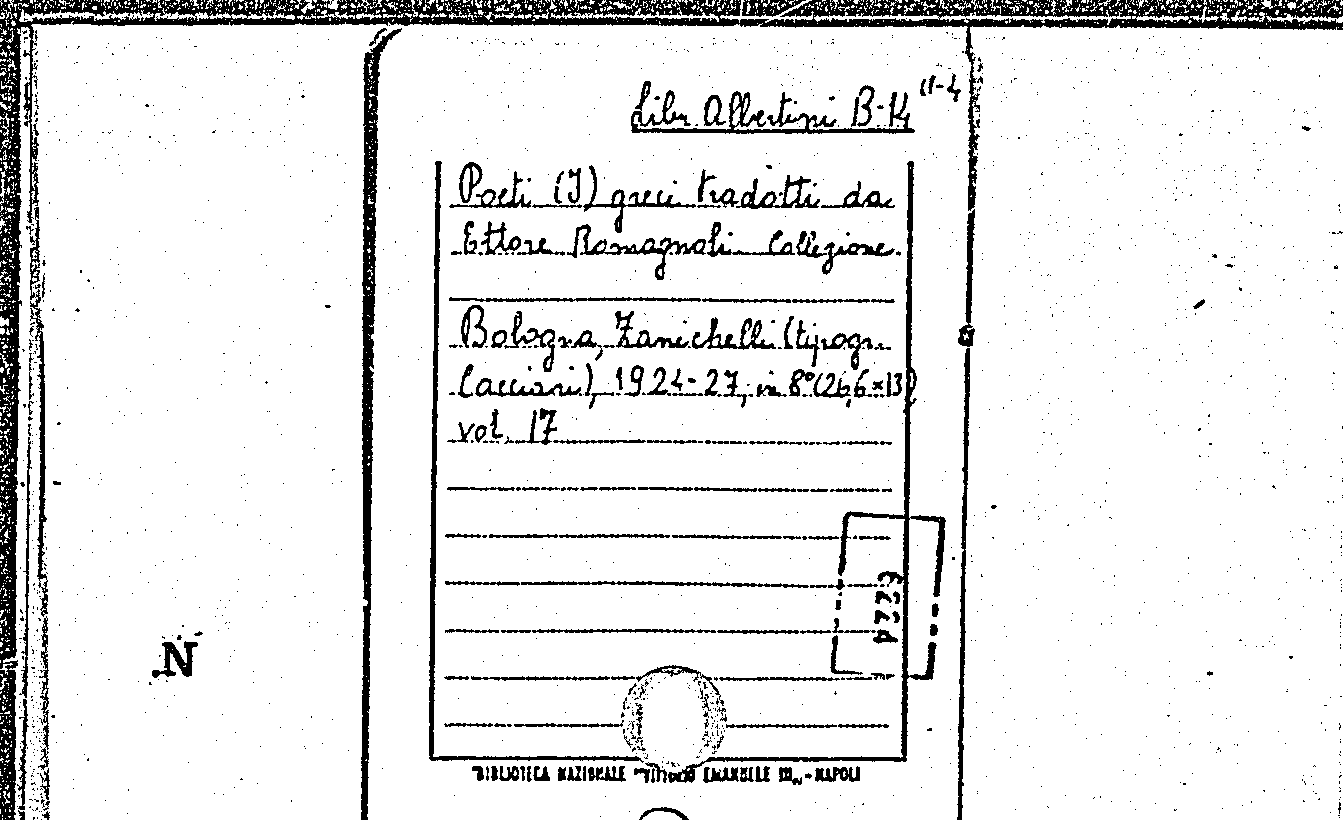 Libr Albertini B-14 (1-4
Poeti (I) greci tradotti da
Ettore Romagnoli. Collezione.
Bologna, Zanichelli (tipogr.
Cacciari), 1924-27, in 8° (26,6×13)
vol. 17
N
BIBLIOTECA NAZIONALE "VITTORIO EMANUELE III" - NAPOLI